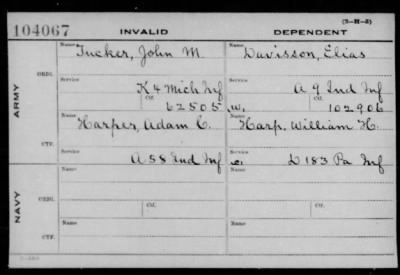 (3-H-5)
104067 INVALID DEPENDENT
Name Tucker, John M. Name Davisson, Elias
ARMY
ORIG. Service K 4 Mich Inf Service A 9 Ind Inf
Ctf. 62505 W. Ctf. 102906
Name Harper, Adam C. Name Harp, William H.
CTF. Service A 58 Ind Inf Service D 183 Pa Inf
NAVY
Name Name
ORIG. Ctf. Ctf.
Name Name
CTF.